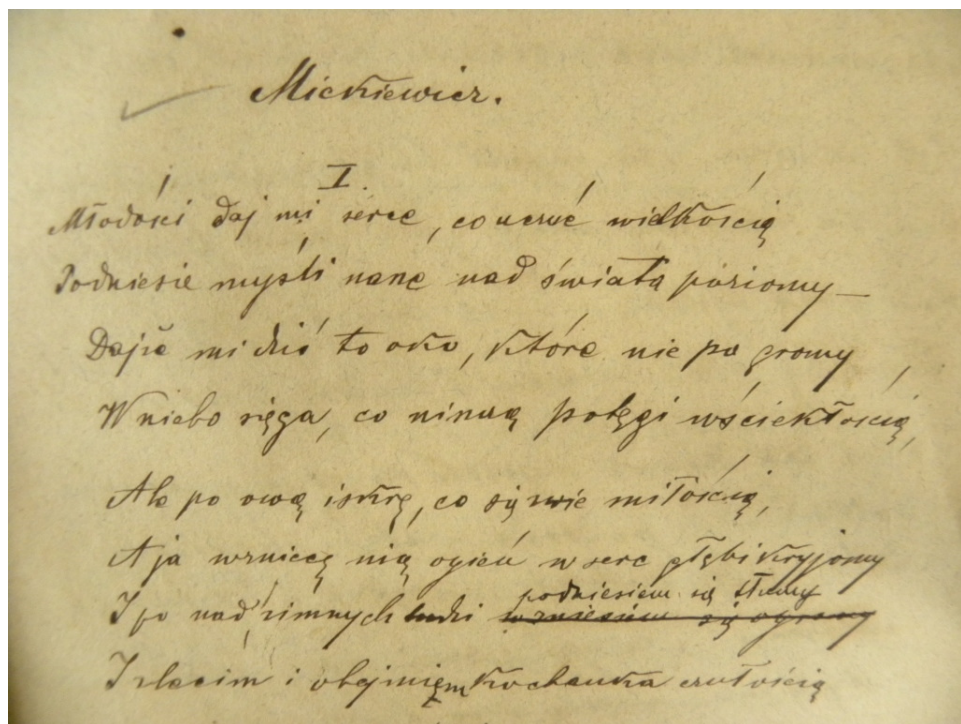 Mickiewicz.
I.
Młodości daj mi serce, co uczuć wielkością
Podniesie myśli nasze nad świata poziomy —
Dajże mi dziś to oko, które nie po gromy
W niebo sięga, co niszczą potęgi wściekłością,
Ale po ową iskrę, co się zwie miłością,
A ja wzniecę nią ogień w serc głębi kryjomy
podniesiem się tłumy
I po nad zimnych ludzi wzniesiem się ogromy
I zlecim i obejmięm kochanka czułością